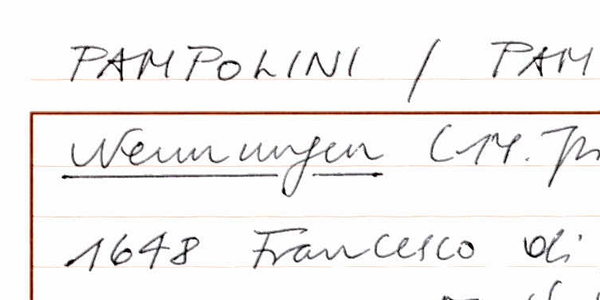 PAMPOLINI / PAM
Nennungen (14. Jh
1648 Francesco di